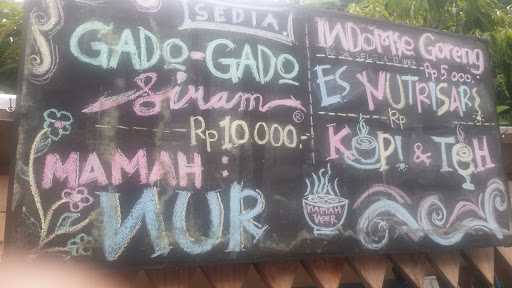 SEDIA
GADO-GADO
Siram ®
Rp 10 000.-
MAMAH :
NUR
INDOMIE GORENG
Rp 5 000.-
ES NUTRISARI
Rp
KOPI & TEH
MAMAH
NOER